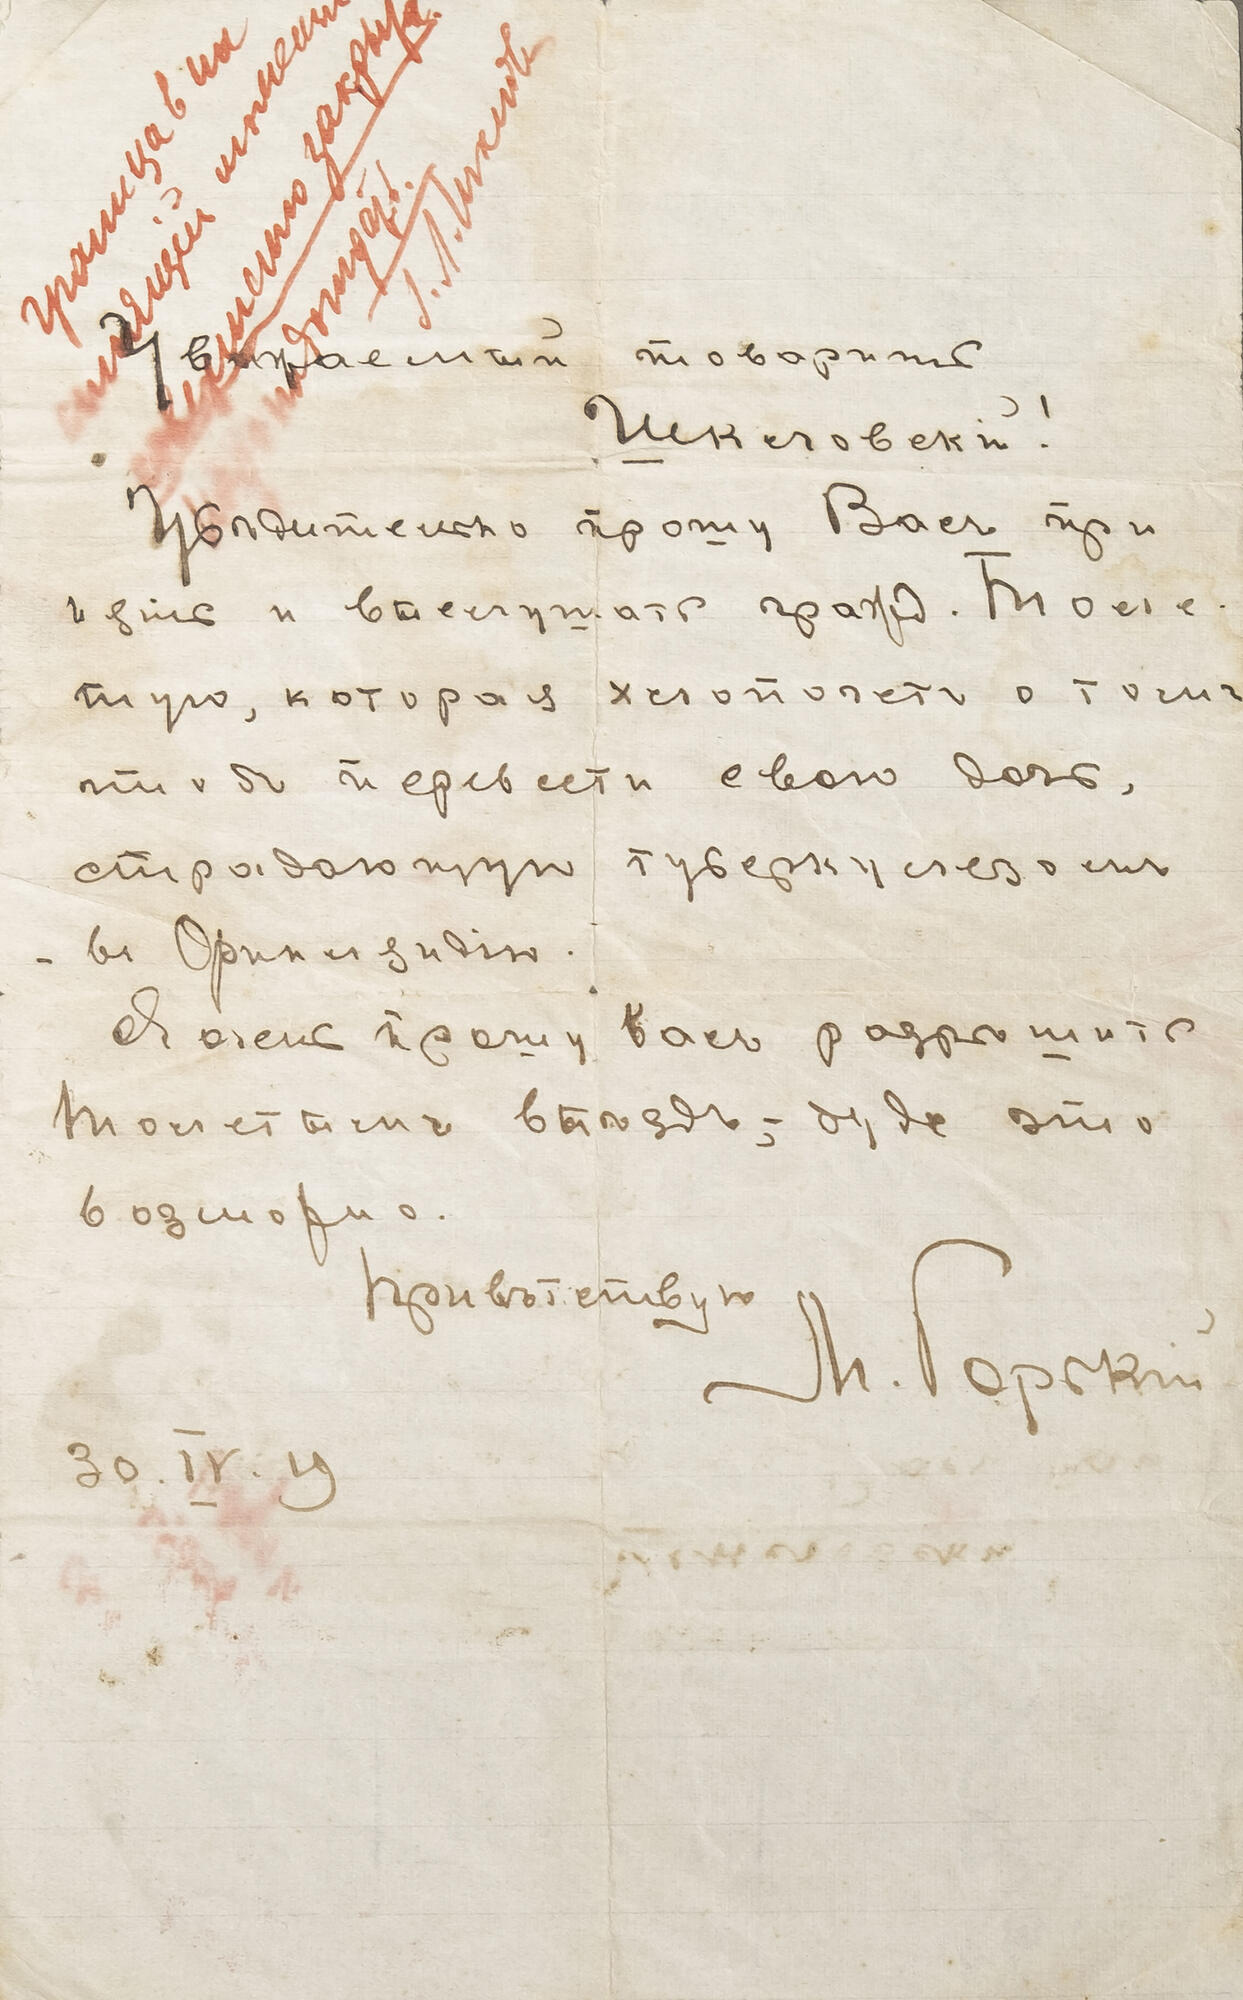 граница в на
стоящій момент
закрыта.
подождать.
Уважаемый товарищъ
Шкловскій!
Убѣдительно прошу Васъ при
нять и выслушать гражд. Толс-
тую, которая хлопочетъ о томъ
чтобъ перевести свою дочь,
страдающую туберкулезомъ
въ Финляндію.
Я очень прошу Васъ разрѣшить
Толстымъ выѣздъ, буде это
возможно.
Привѣтствую
М. Горькій
30. IV. 19